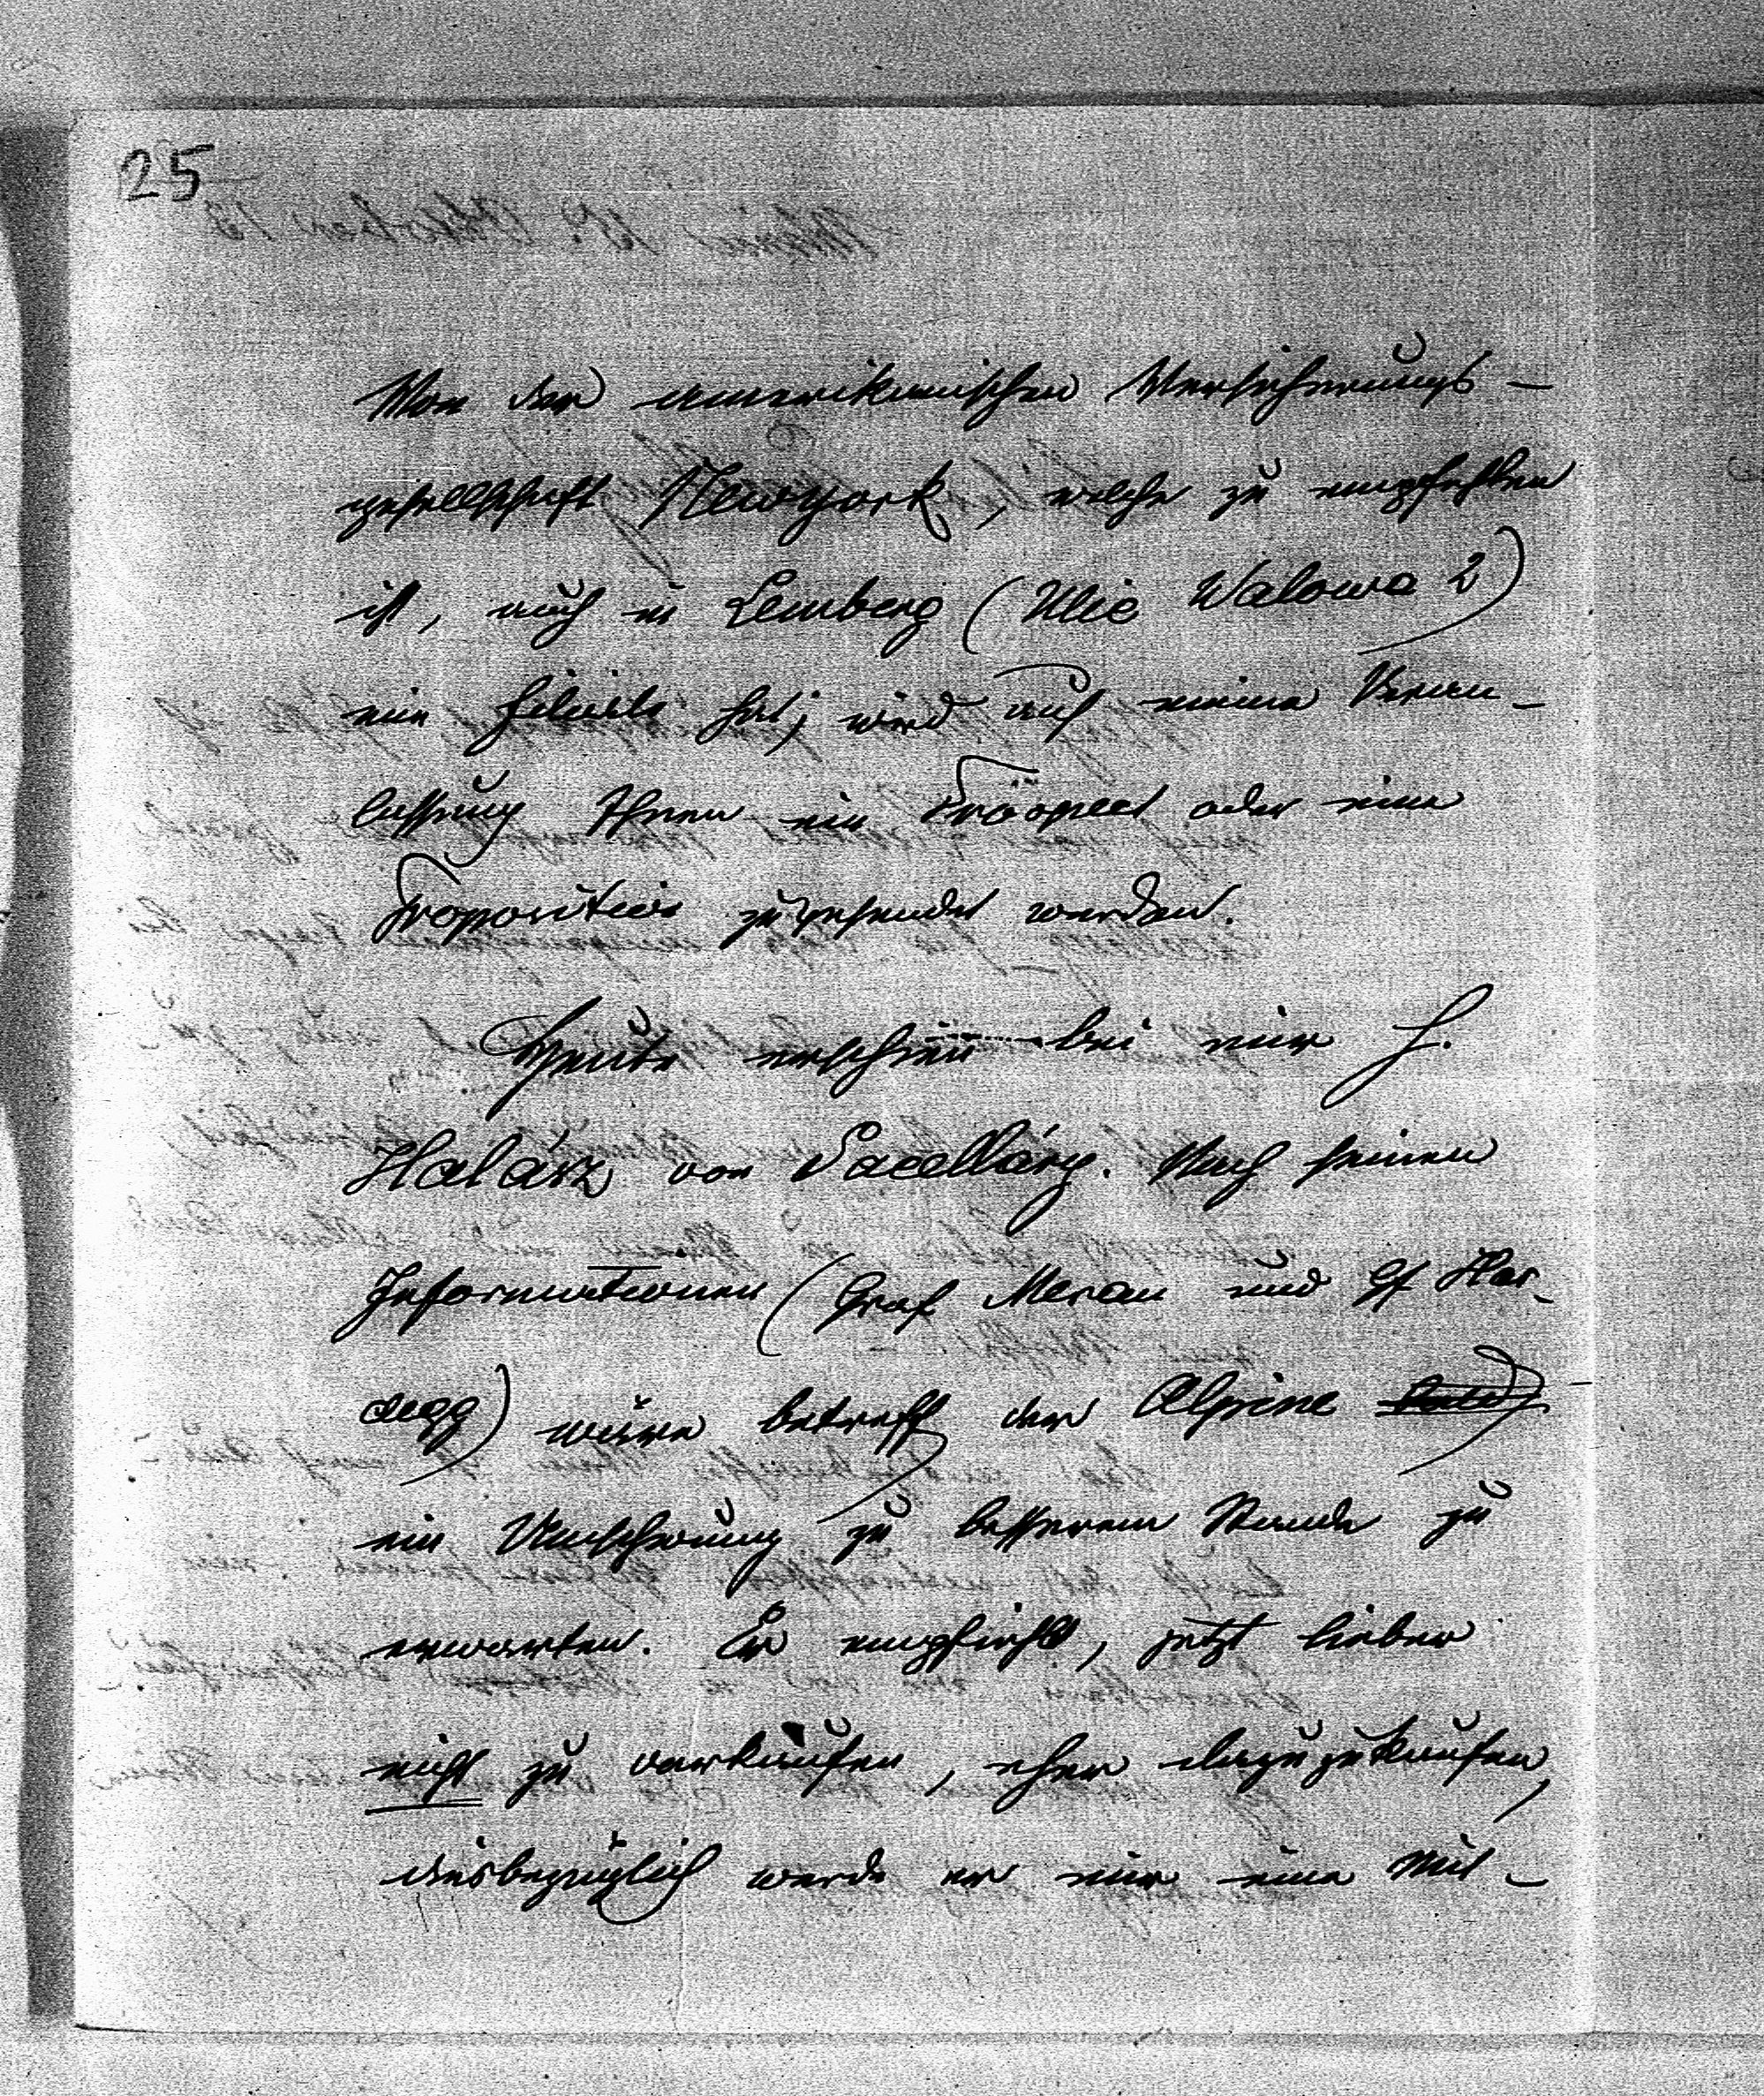 25
Von der amerikanischen Versicherungs-
gesellschaft Newyork, welche zu empfehlen
ist, auch in Lemberg (Ulic Walowa 2)
ein Filiale hat, wird auf meine Veran-
lassung Ihnen ein Prospect oder eine
Proposition zugesendet werden.
Heute erschien bei mir H.
Halász von Dacelláry. Nach seinen
Informationen (Graf Meran und Gf Har-
degg) wäre betreff der Alpine
ein Umschwung zu besserem Stande zu
erwarten. Er empfiehlt, jetzt lieber
nicht zu verkaufen, eher dazuzukaufen,
diesbezüglich werde er mir eine Mit-